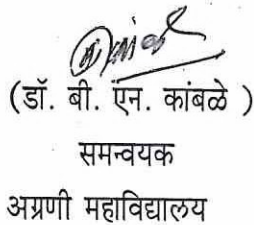 (डॉ. बी. एन. कांबळे )
समन्वयक
अग्रणी महाविद्यालय